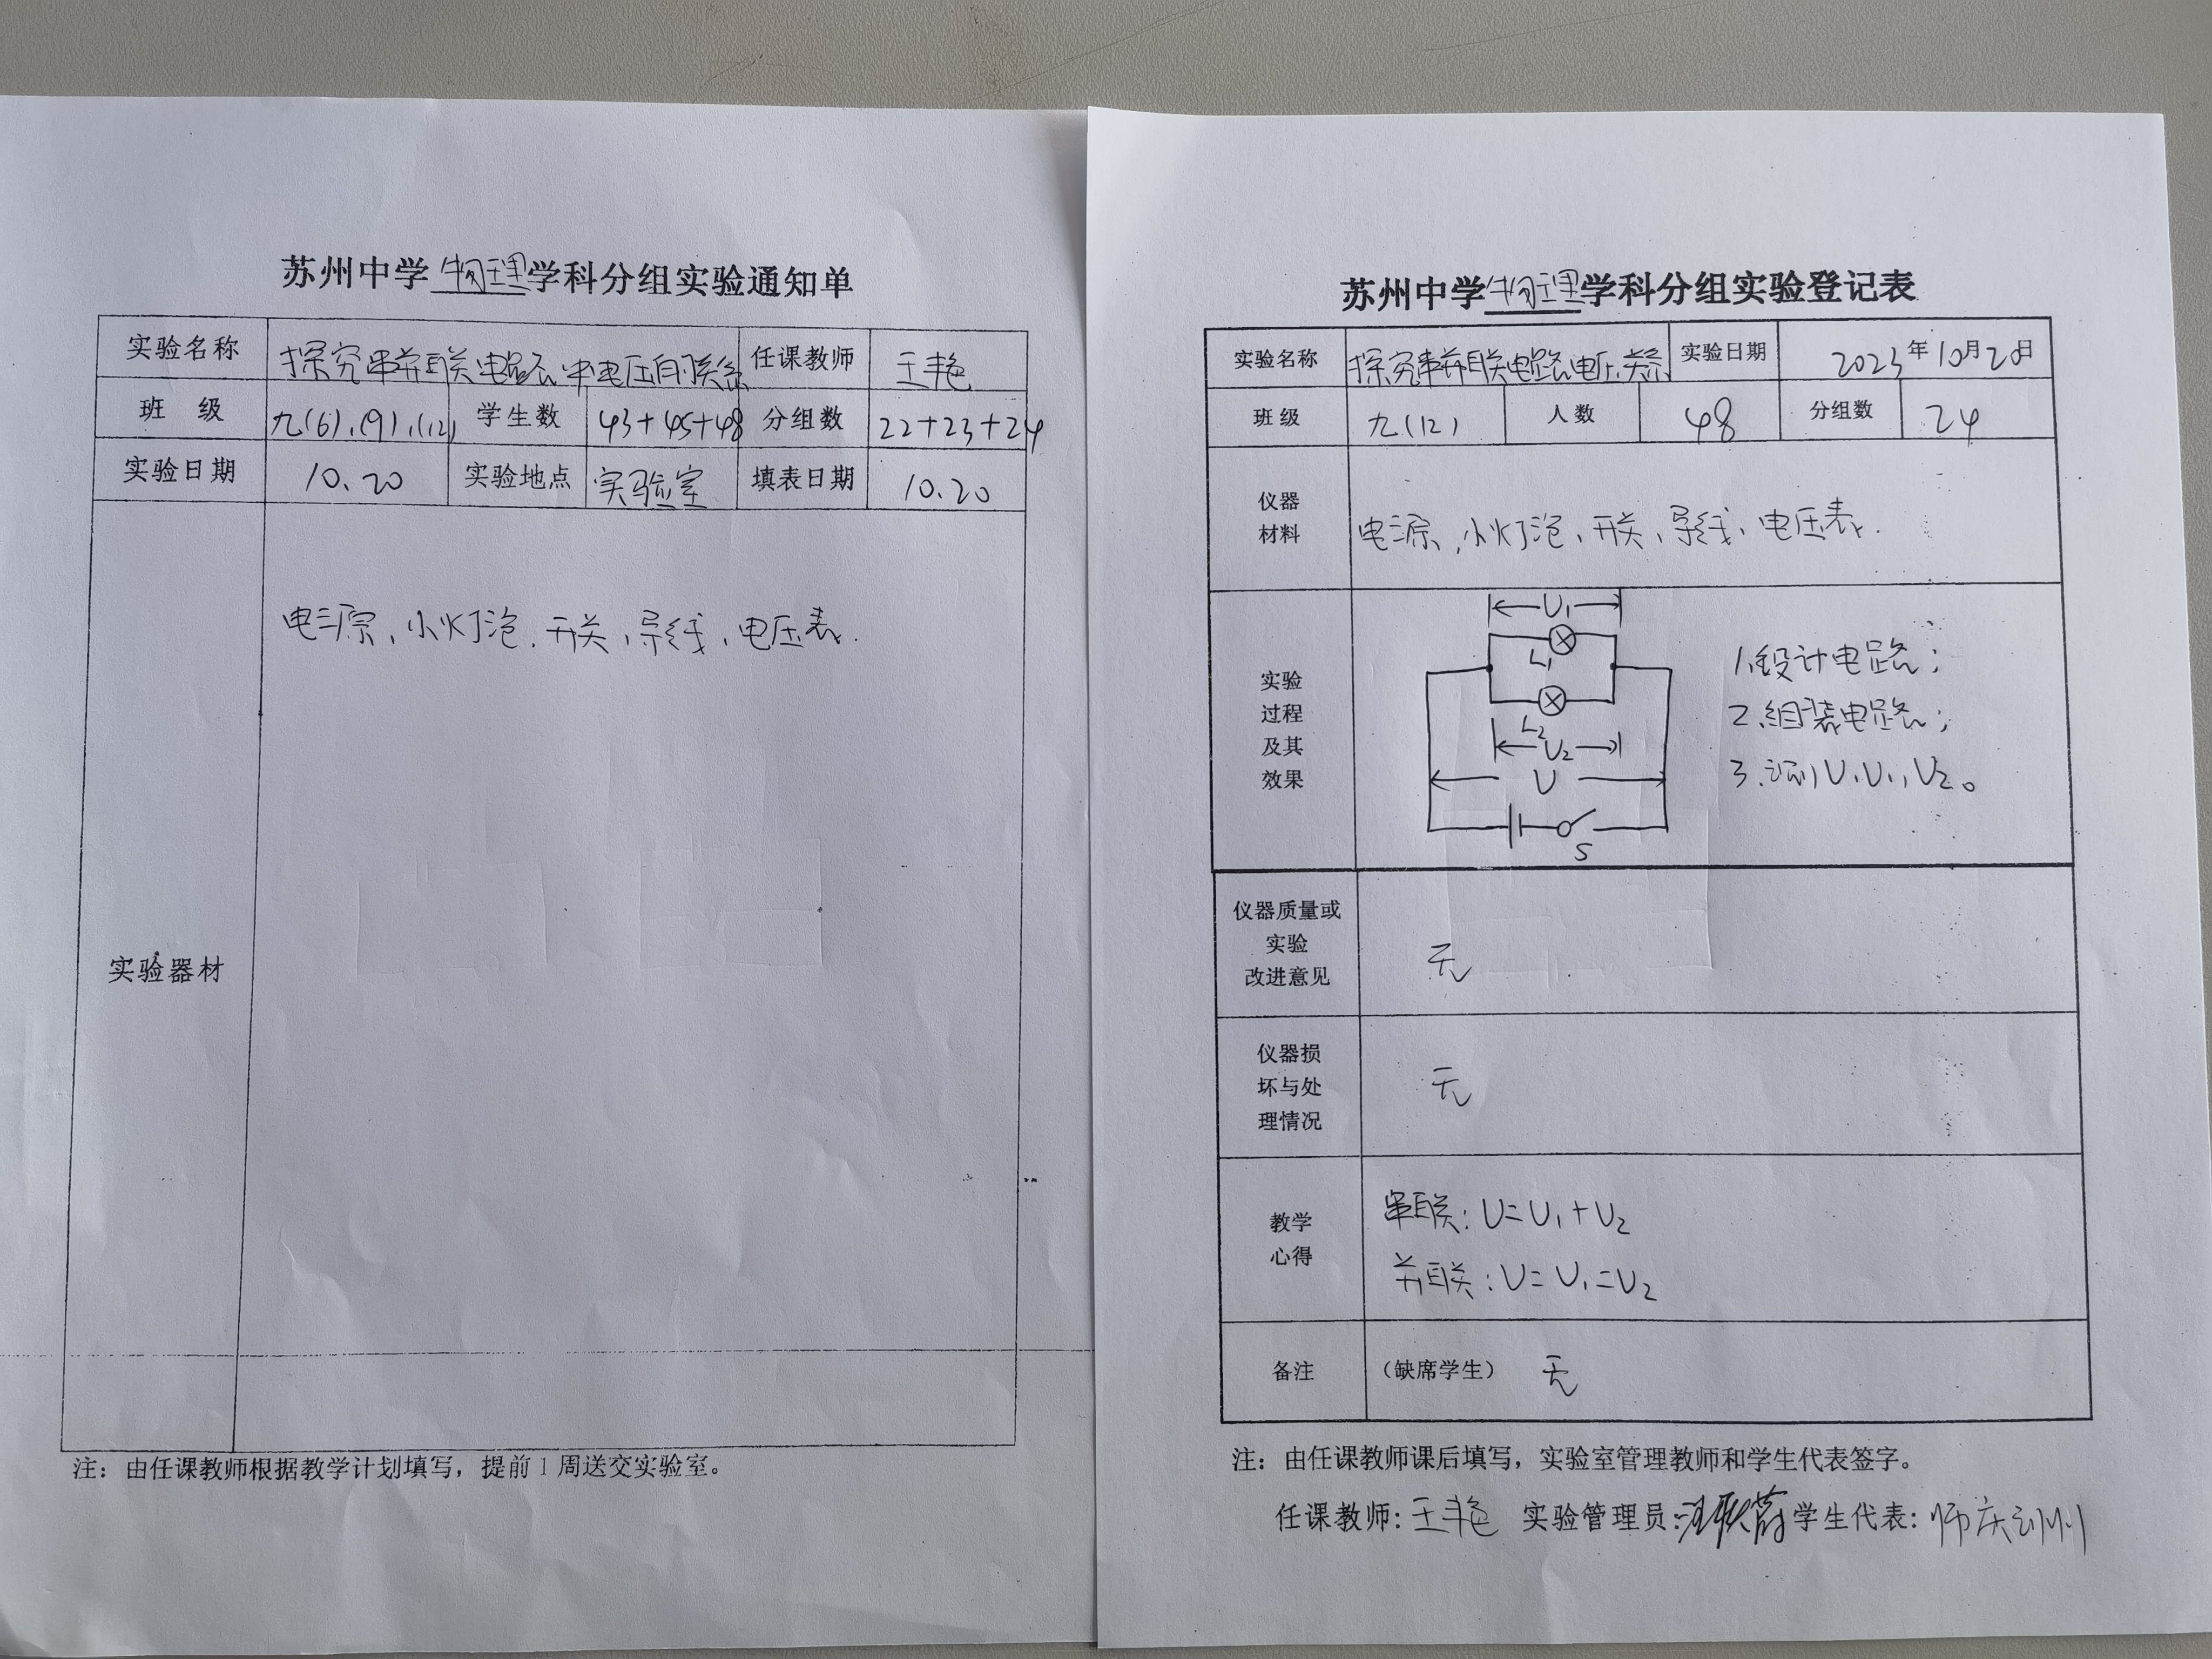 苏州中学物理学科分组实验通知单
实验名称 探究串并联电路中电压的关系 任课教师 王艳
班 级 九(6)、(9)、(12) 学生数 43+45+48 分组数 22+23+24
实验日期 10.20 实验地点 实验室 填表日期 10.20
实验器材
电源、小灯泡、开关、导线、电压表.
注：由任课教师根据教学计划填写，提前1周送交实验室。
苏州中学物理学科分组实验登记表
实验名称 探究串并联电路电压关系 实验日期 2023年10月20日
班级 九(12) 人数 48 分组数 24
仪器
材料
电源、小灯泡、开关、导线、电压表.
实验
过程
及其
效果
U1
L1
L2
U2
U
S
1.设计电路；
2.组装电路；
3.测U、U1、U2。
仪器质量或
实验
改进意见
无
仪器损
坏与处
理情况
无
教学
心得
串联：U=U1+U2
并联：U=U1=U2
备注 （缺席学生） 无
注：由任课教师课后填写，实验室管理教师和学生代表签字。
任课教师：王艳 实验管理员： 学生代表：